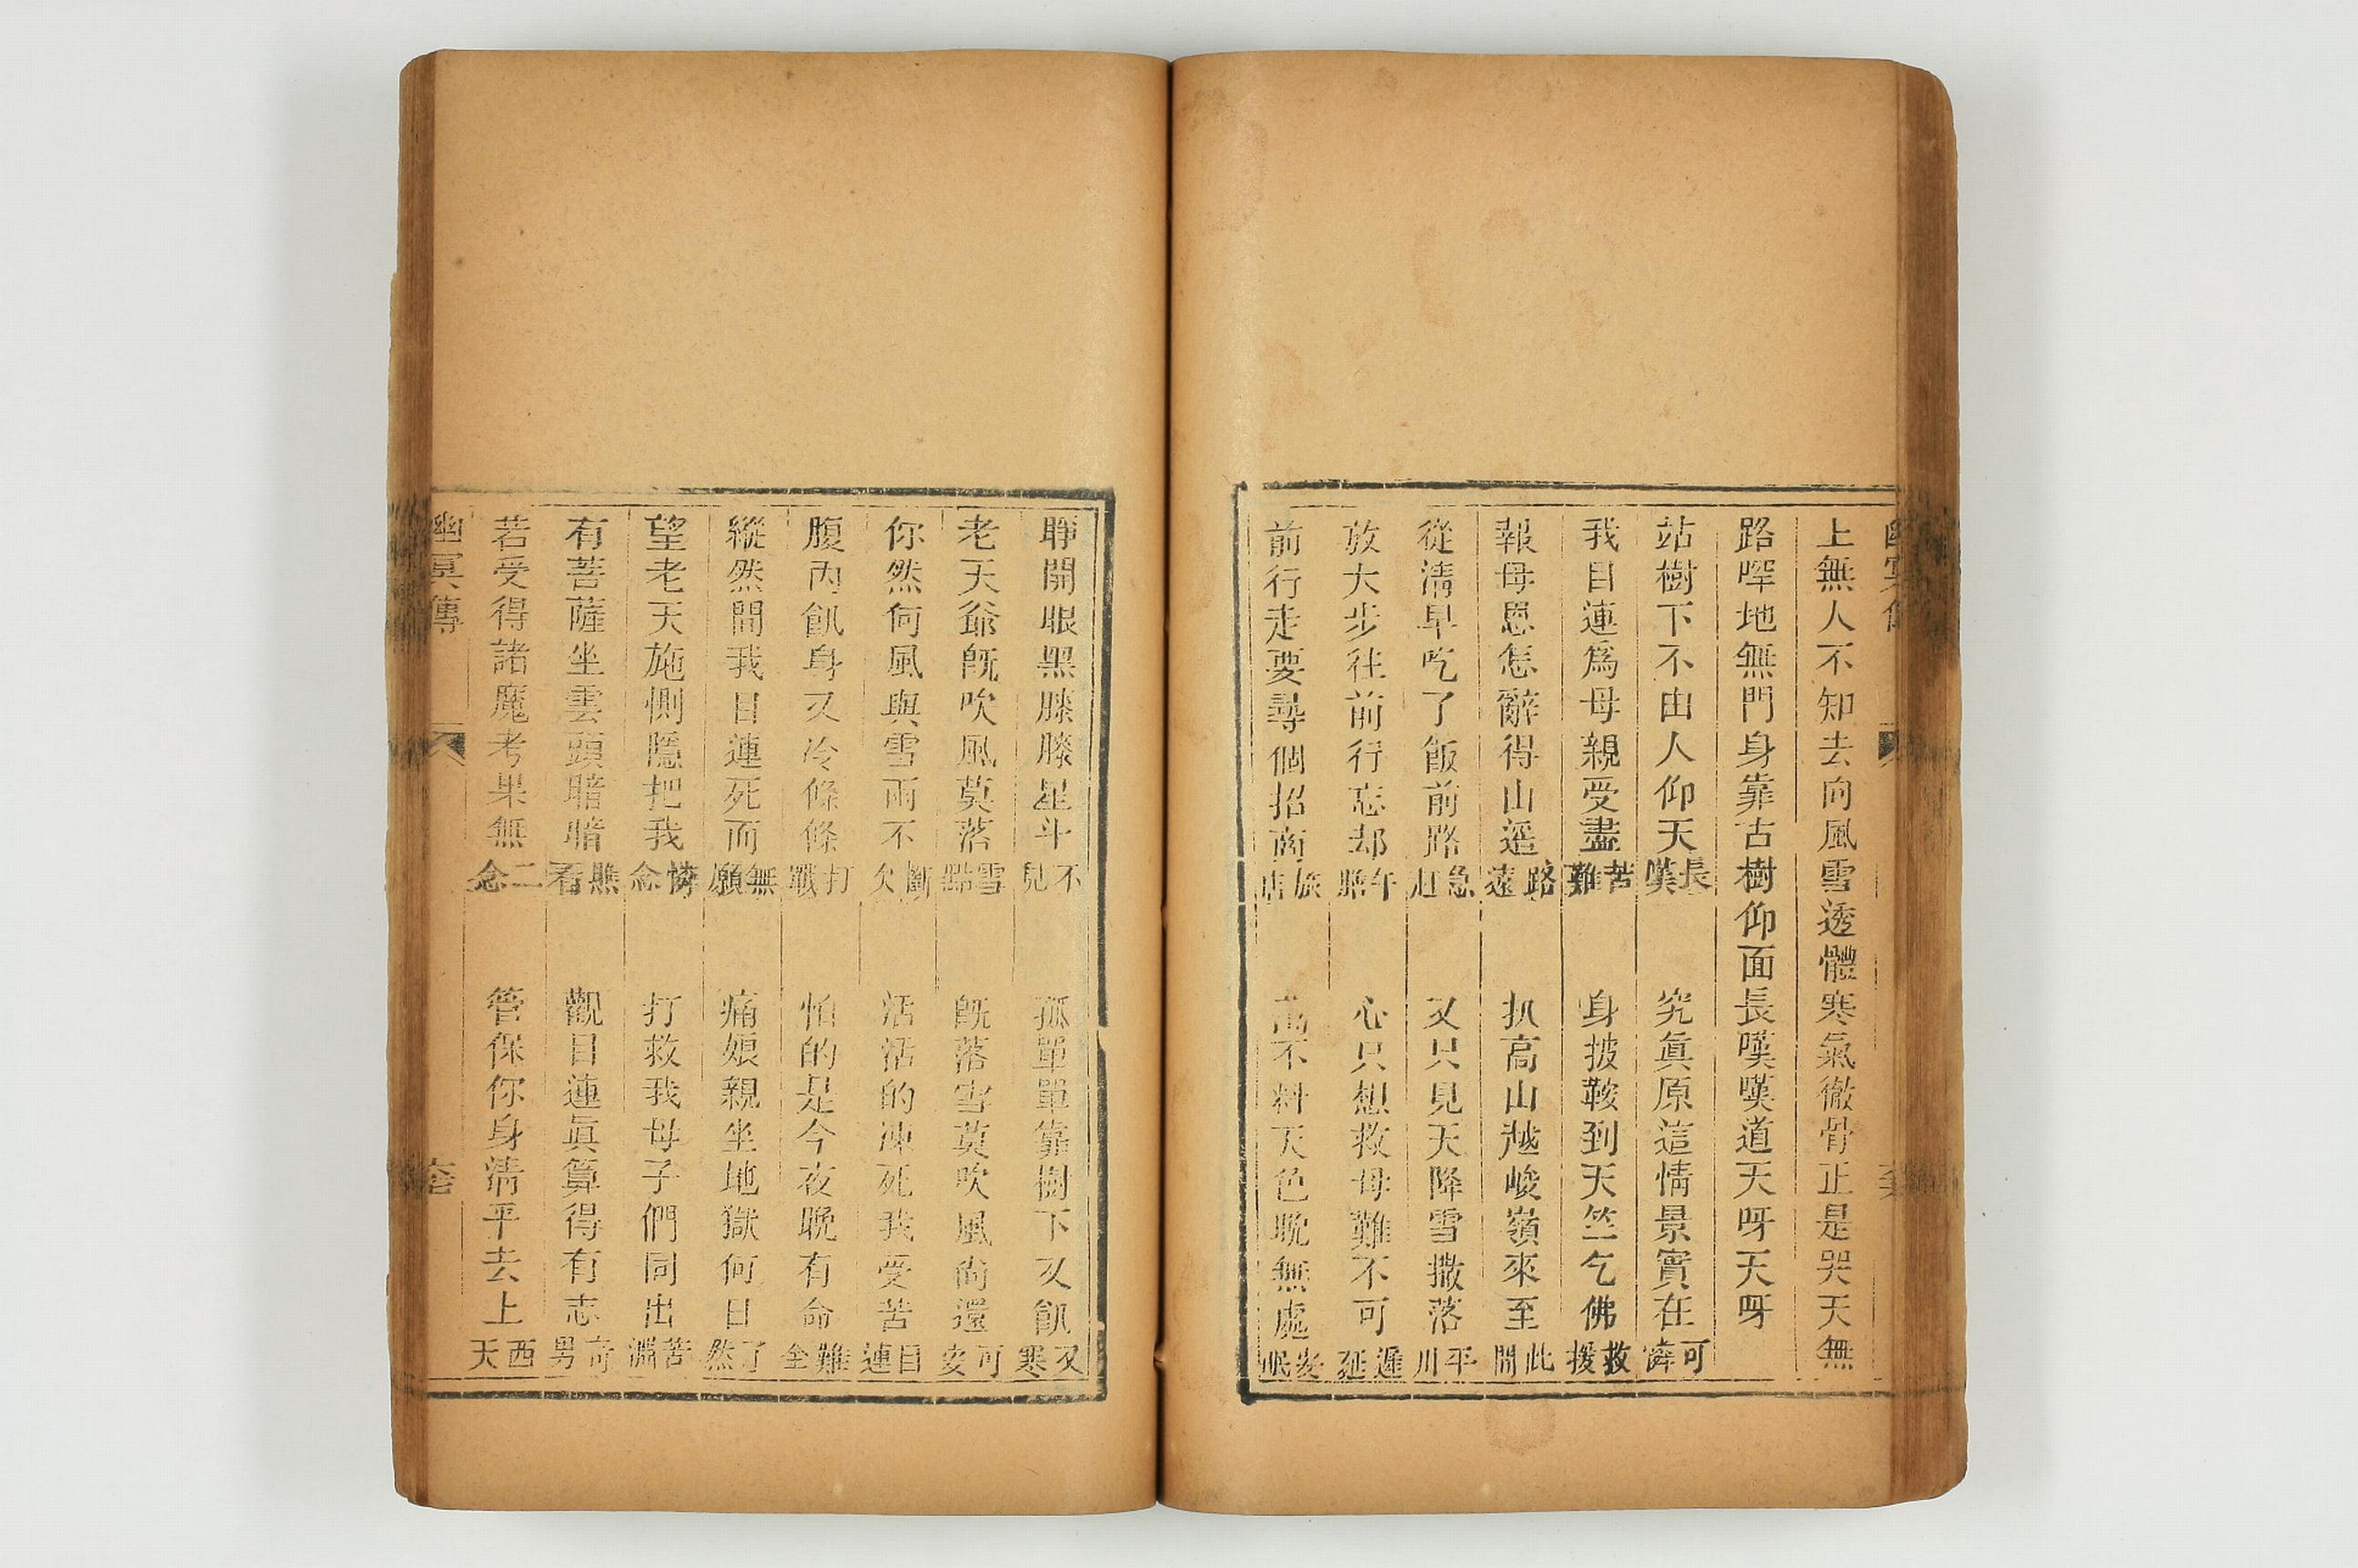 上無人不知去向風雪透體寒氣徹骨正是哭天無
路哭地無門身靠古樹仰面長嘆嘆道天呀天呀
站樹下不由人仰天長嘆 究眞原這情景實在可憐
我目連爲母親受盡苦難 身披鞍到天竺乞佛救援
報母恩怎辭得山遥路遠 扒高山越峻嶺來至此間
從清早吃了飯前路急赶 又只見天降雪撒落平川
放大步往前行忘却午膳 心只想救母難不可遲延
前行走要尋個招商旅店 萬不料天色晚無處安眠
睜開眼黑朦朦星斗不見 孤單單靠樹下又飢又寒
老天爺旣吹風莫落雪 旣落雪莫吹風尙還可安
你然何風與雪雨不斷欠 活活的凍死我受苦目連
腹內飢身又冷條條打戰 怕的是今夜晚有命難全
縱然間我目連死而無願 痛娘親坐地獄何日了然
望老天施惻隱把我憐念 打救我母子們同出苦淵
有菩薩坐雲頭暗暗瞧看 觀目連眞算得有志奇男
若受得諸魔考果無二念 管保你身清平去上西天
幽冥傳